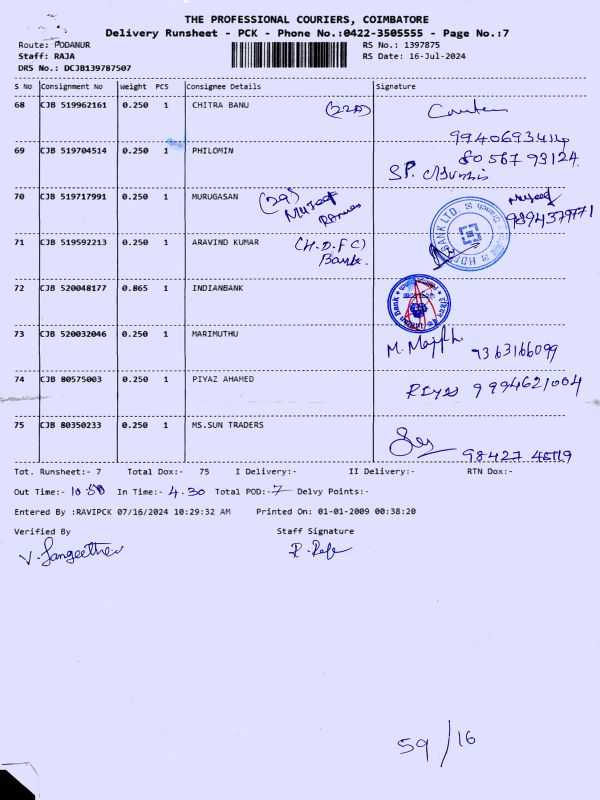 THE PROFESSIONAL COURIERS, COIMBATORE
Delivery Runsheet - PCK - Phone No.:0422-3505555 - Page No.:7
Route: PODANUR RS No.: 1397875
Staff: RAJA RS Date: 16-Jul-2024
DRS No.: DCJB139787507
S No Consignment No Weight PCS Consignee Details Signature
68 CJB 519962161 0.250 1 CHITRA BANU
9940693414
69 CJB 519704514 0.250 1 PHILOMIN 80567 93124
SP.
70 CJB 519717991 0.250 1 MURUGASAN (29)
9894379771
71 CJB 519592213 0.250 1 ARAVIND KUMAR (H.D.F.C)
Bank.
72 CJB 520048177 0.865 1 INDIANBANK
73 CJB 520032046 0.250 1 MARIMUTHU
9363166099
74 CJB 80575003 0.250 1 PIYAZ AHAMED
9994621004
75 CJB 80350233 0.250 1 MS.SUN TRADERS
98427
Tot. Runsheet:- 7 Total Dox:- 75 I Delivery:- II Delivery:- RTN Dox:-
Out Time:- 10.50 In Time:- 4.30 Total POD:- 7 Delvy Points:-
Entered By :RAVIPCK 07/16/2024 10:29:32 AM Printed On: 01-01-2009 00:38:20
Verified By Staff Signature
V. Sangeetha
59/16